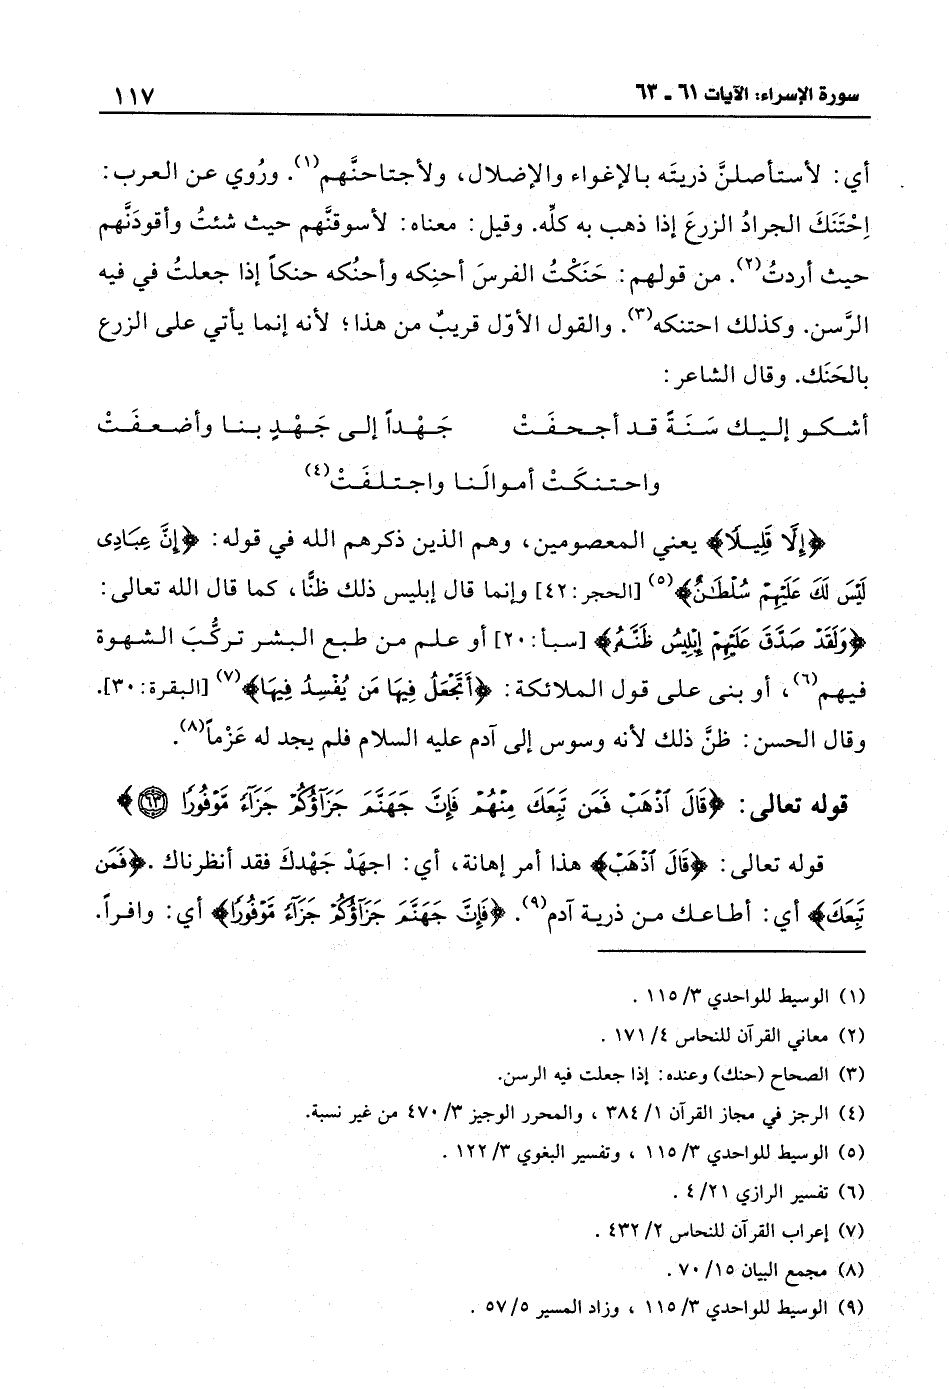 سورة الإسراء: الآيات ٦١ ـ ٦٣
١١٧
أي: لأستأصلنَّ ذريتَه بالإغواء والإضلال، ولأجتاحنَّهم(١). ورُوي عن العرب:
اِحْتَنَكَ الجرادُ الزرعَ إذا ذهب به كلِّه. وقيل: معناه: لأسوقنَّهم حيث شئتُ وأقودَنَّهم
حيث أردتُ(٢). من قولهم: حَنَكْتُ الفرسَ أحنِكه وأحنُكه حنكاً إذا جعلتُ في فيه
الرَّسن. وكذلك احتنكه(٣). والقول الأوّل قريبٌ من هذا؛ لأنه إنما يأتي على الزرع
بالحَنَك. وقال الشاعر:
أشكو إليك سَنَةً قد أجحفَتْ جَهْداً إلى جَهْدٍ بنا وأضعفَتْ
واحتنكَتْ أموالَنا واجتلفَتْ(٤)
﴿إِلَّا قَلِيلًا﴾ يعني المعصومين، وهم الذين ذكرهم الله في قوله: ﴿إِنَّ عِبَادِى
لَيْسَ لَكَ عَلَيْهِمْ سُلْطَٰنٌ﴾(٥) [الحجر:٤٢] وإنما قال إبليس ذلك ظنًّا، كما قال الله تعالى:
﴿وَلَقَدْ صَدَّقَ عَلَيْهِمْ إِبْلِيسُ ظَنَّهُۥ﴾ [سبأ:٢٠] أو علم من طبع البشر تركُّبَ الشهوة
فيهم(٦)، أو بنى على قول الملائكة: ﴿أَتَجْعَلُ فِيهَا مَن يُفْسِدُ فِيهَا﴾(٧) [البقرة:٣٠].
وقال الحسن: ظنَّ ذلك لأنه وسوس إلى آدم عليه السلام فلم يجد له عَزْماً(٨).
قوله تعالى: ﴿قَالَ ٱذْهَبْ فَمَن تَبِعَكَ مِنْهُمْ فَإِنَّ جَهَنَّمَ جَزَآؤُكُمْ جَزَآءً مَّوْفُورًا ۝٦٣﴾
قوله تعالى: ﴿قَالَ ٱذْهَبْ﴾ هذا أمر إهانة، أي: اجهَدْ جَهْدكَ فقد أنظرناك. ﴿فَمَن
تَبِعَكَ﴾ أي: أطاعك من ذرية آدم(٩). ﴿فَإِنَّ جَهَنَّمَ جَزَآؤُكُمْ جَزَآءً مَّوْفُورًا﴾ أي: وافراً.
(١) الوسيط للواحدي ٣/ ١١٥ .
(٢) معاني القرآن للنحاس ٤/ ١٧١ .
(٣) الصحاح (حنك) وعنده: إذا جعلت فيه الرسن.
(٤) الرجز في مجاز القرآن ١/ ٣٨٤ ، والمحرر الوجيز ٣/ ٤٧٠ من غير نسبة.
(٥) الوسيط للواحدي ٣/ ١١٥ ، وتفسير البغوي ٣/ ١٢٢ .
(٦) تفسير الرازي ٢١/ ٤ .
(٧) إعراب القرآن للنحاس ٢/ ٤٣٢ .
(٨) مجمع البيان ١٥/ ٧٠ .
(٩) الوسيط للواحدي ٣/ ١١٥ ، وزاد المسير ٥/ ٥٧ .